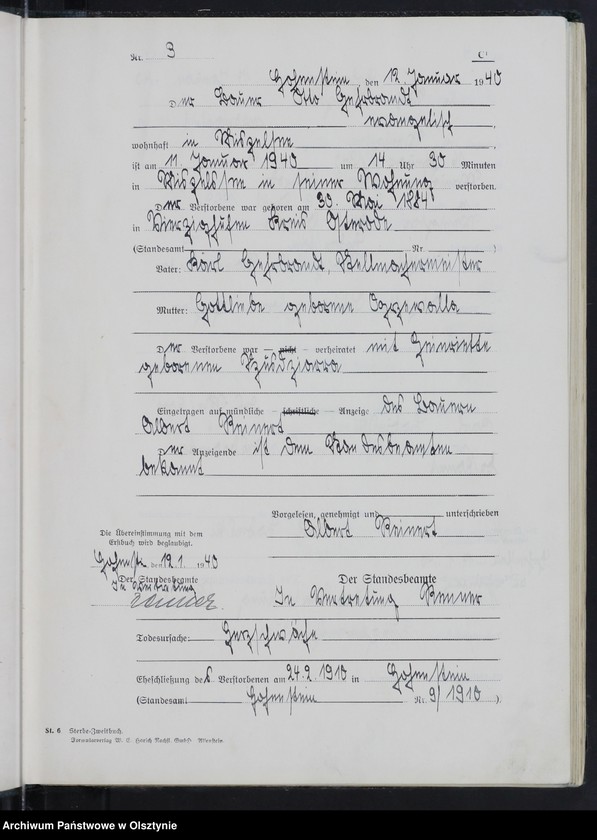 Nr. 3 C
Hohenstein, den 12. Januar 1940
Der Bauer Otto Gehrbrandt
evangelisch,
wohnhaft in
ist am 11. Januar 1940 um 14 Uhr 30 Minuten
in in seiner Wohnung verstorben.
Der Verstorbene war geboren am 30. Mai 1884
in Vierzighufen Kreis Osterode
(Standesamt Nr. )
Vater: Karl Gehrbrandt, Stellmachermeister
Mutter: Gottliebe geborene
Der Verstorbene war — nicht — verheiratet mit Heinriette
geborenen
Eingetragen auf mündliche — schriftliche — Anzeige des Bauern
Albert Reinert
Der Anzeigende ist dem Standesbeamten
bekannt
Vorgelesen, genehmigt und unterschrieben
Albert Reinert
Die Übereinstimmung mit dem
Erstbuch wird beglaubigt.
Hohenstein, den 12.1. 1940
Der Standesbeamte
In Vertretung
Der Standesbeamte
In Vertretung Renner
Todesursache: Herzschwäche
Eheschließung des Verstorbenen am 24.2.1910 in Hohenstein
(Standesamt Hohenstein Nr. 9/1910 )
St. 6 Sterbe-Zweitbuch.
Formularverlag W. E. Harich Nachf. GmbH. Allenstein.
Archiwum Państwowe w Olsztynie